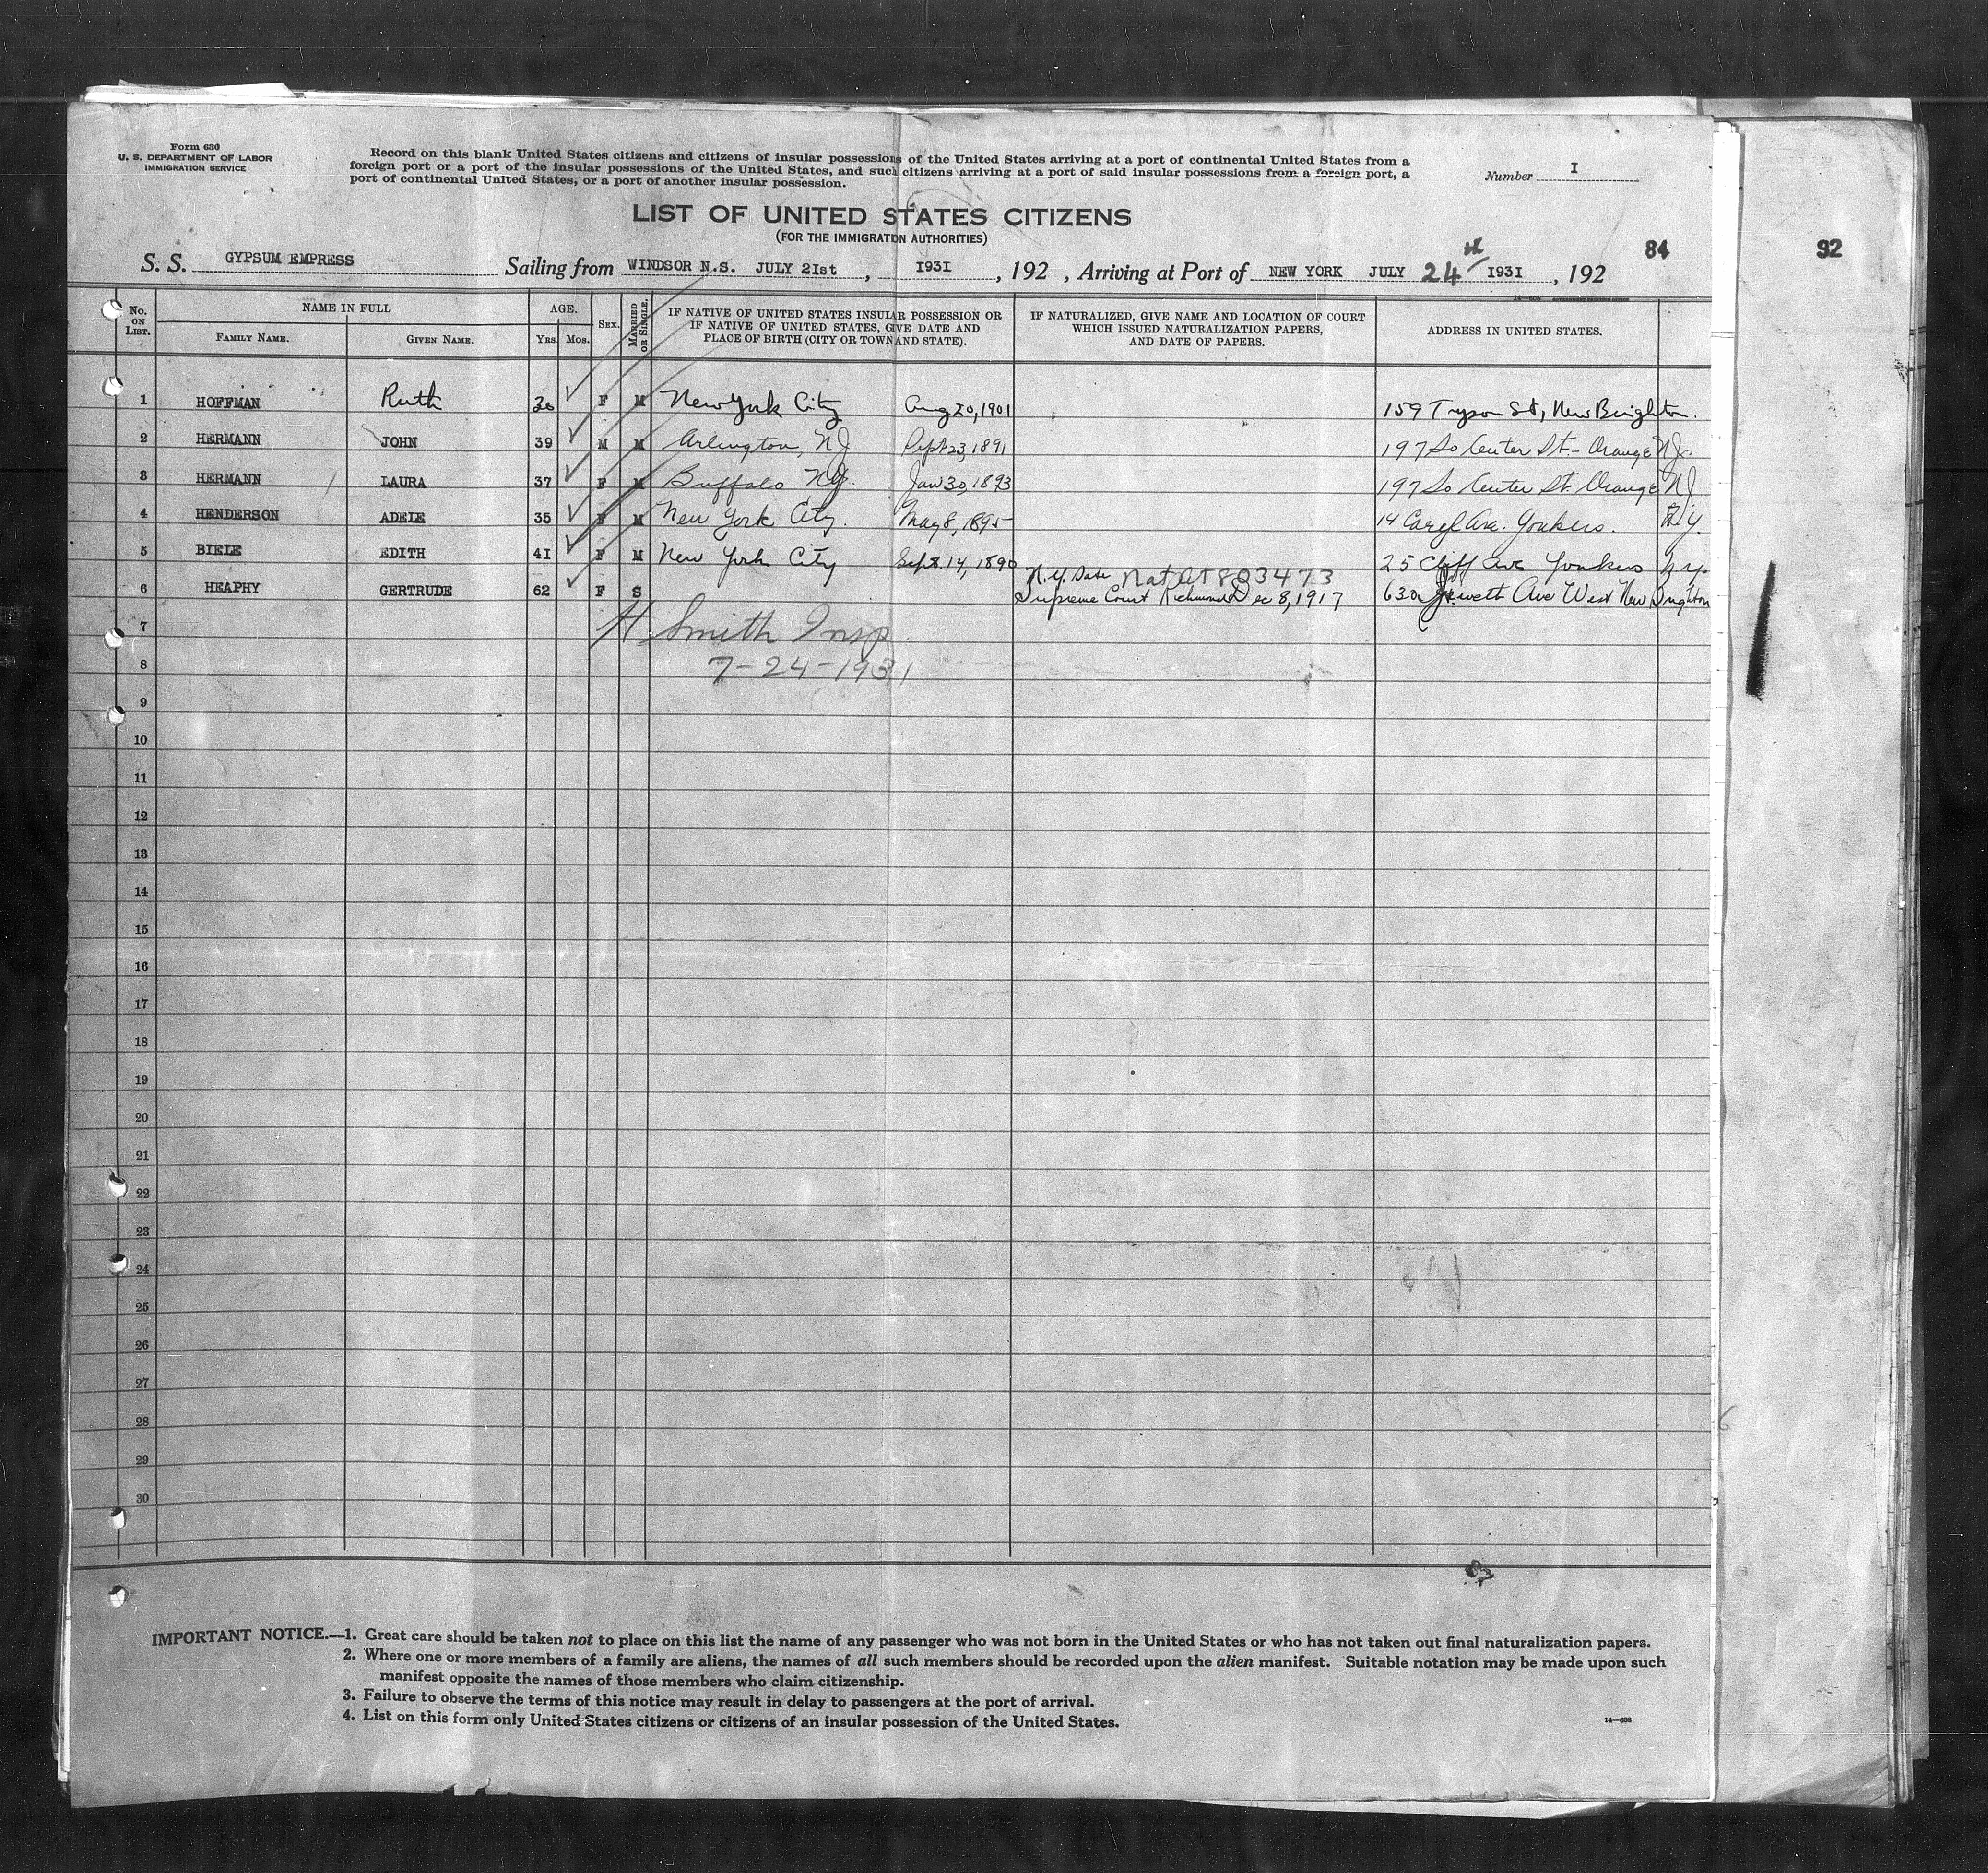 Form 630
U. S. DEPARTMENT OF LABOR
IMMIGRATION SERVICE
Record on this blank United States citizens and citizens of insular possessions of the United States arriving at a port of continental United States from a
foreign port or a port of the insular possessions of the United States, and such citizens arriving at a port of said insular possessions from a foreign port, a
port of continental United States, or a port of another insular possession.
Number I
LIST OF UNITED STATES CITIZENS
(FOR THE IMMIGRATON AUTHORITIES)
84
92
S. S. GYPSUM EMPRESS Sailing from WINDSOR N.S. JULY 2Ist, I93I, 192 , Arriving at Port of NEW YORK JULY 24th I93I, 192
No. ON LIST.
NAME IN FULL
FAMILY NAME.
GIVEN NAME.
AGE.
YRS.
MOS.
SEX.
MARRIED OR SINGLE.
IF NATIVE OF UNITED STATES INSULAR POSSESSION OR
IF NATIVE OF UNITED STATES, GIVE DATE AND
PLACE OF BIRTH (CITY OR TOWN AND STATE).
IF NATURALIZED, GIVE NAME AND LOCATION OF COURT
WHICH ISSUED NATURALIZATION PAPERS,
AND DATE OF PAPERS.
ADDRESS IN UNITED STATES.
1 HOFFMAN Ruth F M New York City Aug 20, 1901 159 Tyson St, New Brighton.
2 HERMANN JOHN 39 M M Arlington, NJ Sept 23, 1891 197 So Center St.- Orange NJ.
3 HERMANN LAURA 37 F M Buffalo NY. Jan 30, 1893 197 So Center St. Orange NJ
4 HENDERSON ADELE 35 F M New York City. May 8, 1895 14 Ave. Yonkers. N.Y.
5 BIELE EDITH 4I F M New York City Sept. 14, 1890 25 Cliff Ave Yonkers N.Y.
N.Y. State Nat Ct 803473
6 HEAPHY GERTRUDE 62 F S Supreme Court Richmond Dec 8, 1917 630 Jewett Ave West New Brighton
7 H Smith Insp.
8 7-24-1931
9
10
11
12
13
14
15
16
17
18
19
20
21
22
23
24
25
26
27
28
29
30
IMPORTANT NOTICE.—1. Great care should be taken not to place on this list the name of any passenger who was not born in the United States or who has not taken out final naturalization papers.
2. Where one or more members of a family are aliens, the names of all such members should be recorded upon the alien manifest. Suitable notation may be made upon such
manifest opposite the names of those members who claim citizenship.
3. Failure to observe the terms of this notice may result in delay to passengers at the port of arrival.
4. List on this form only United States citizens or citizens of an insular possession of the United States.